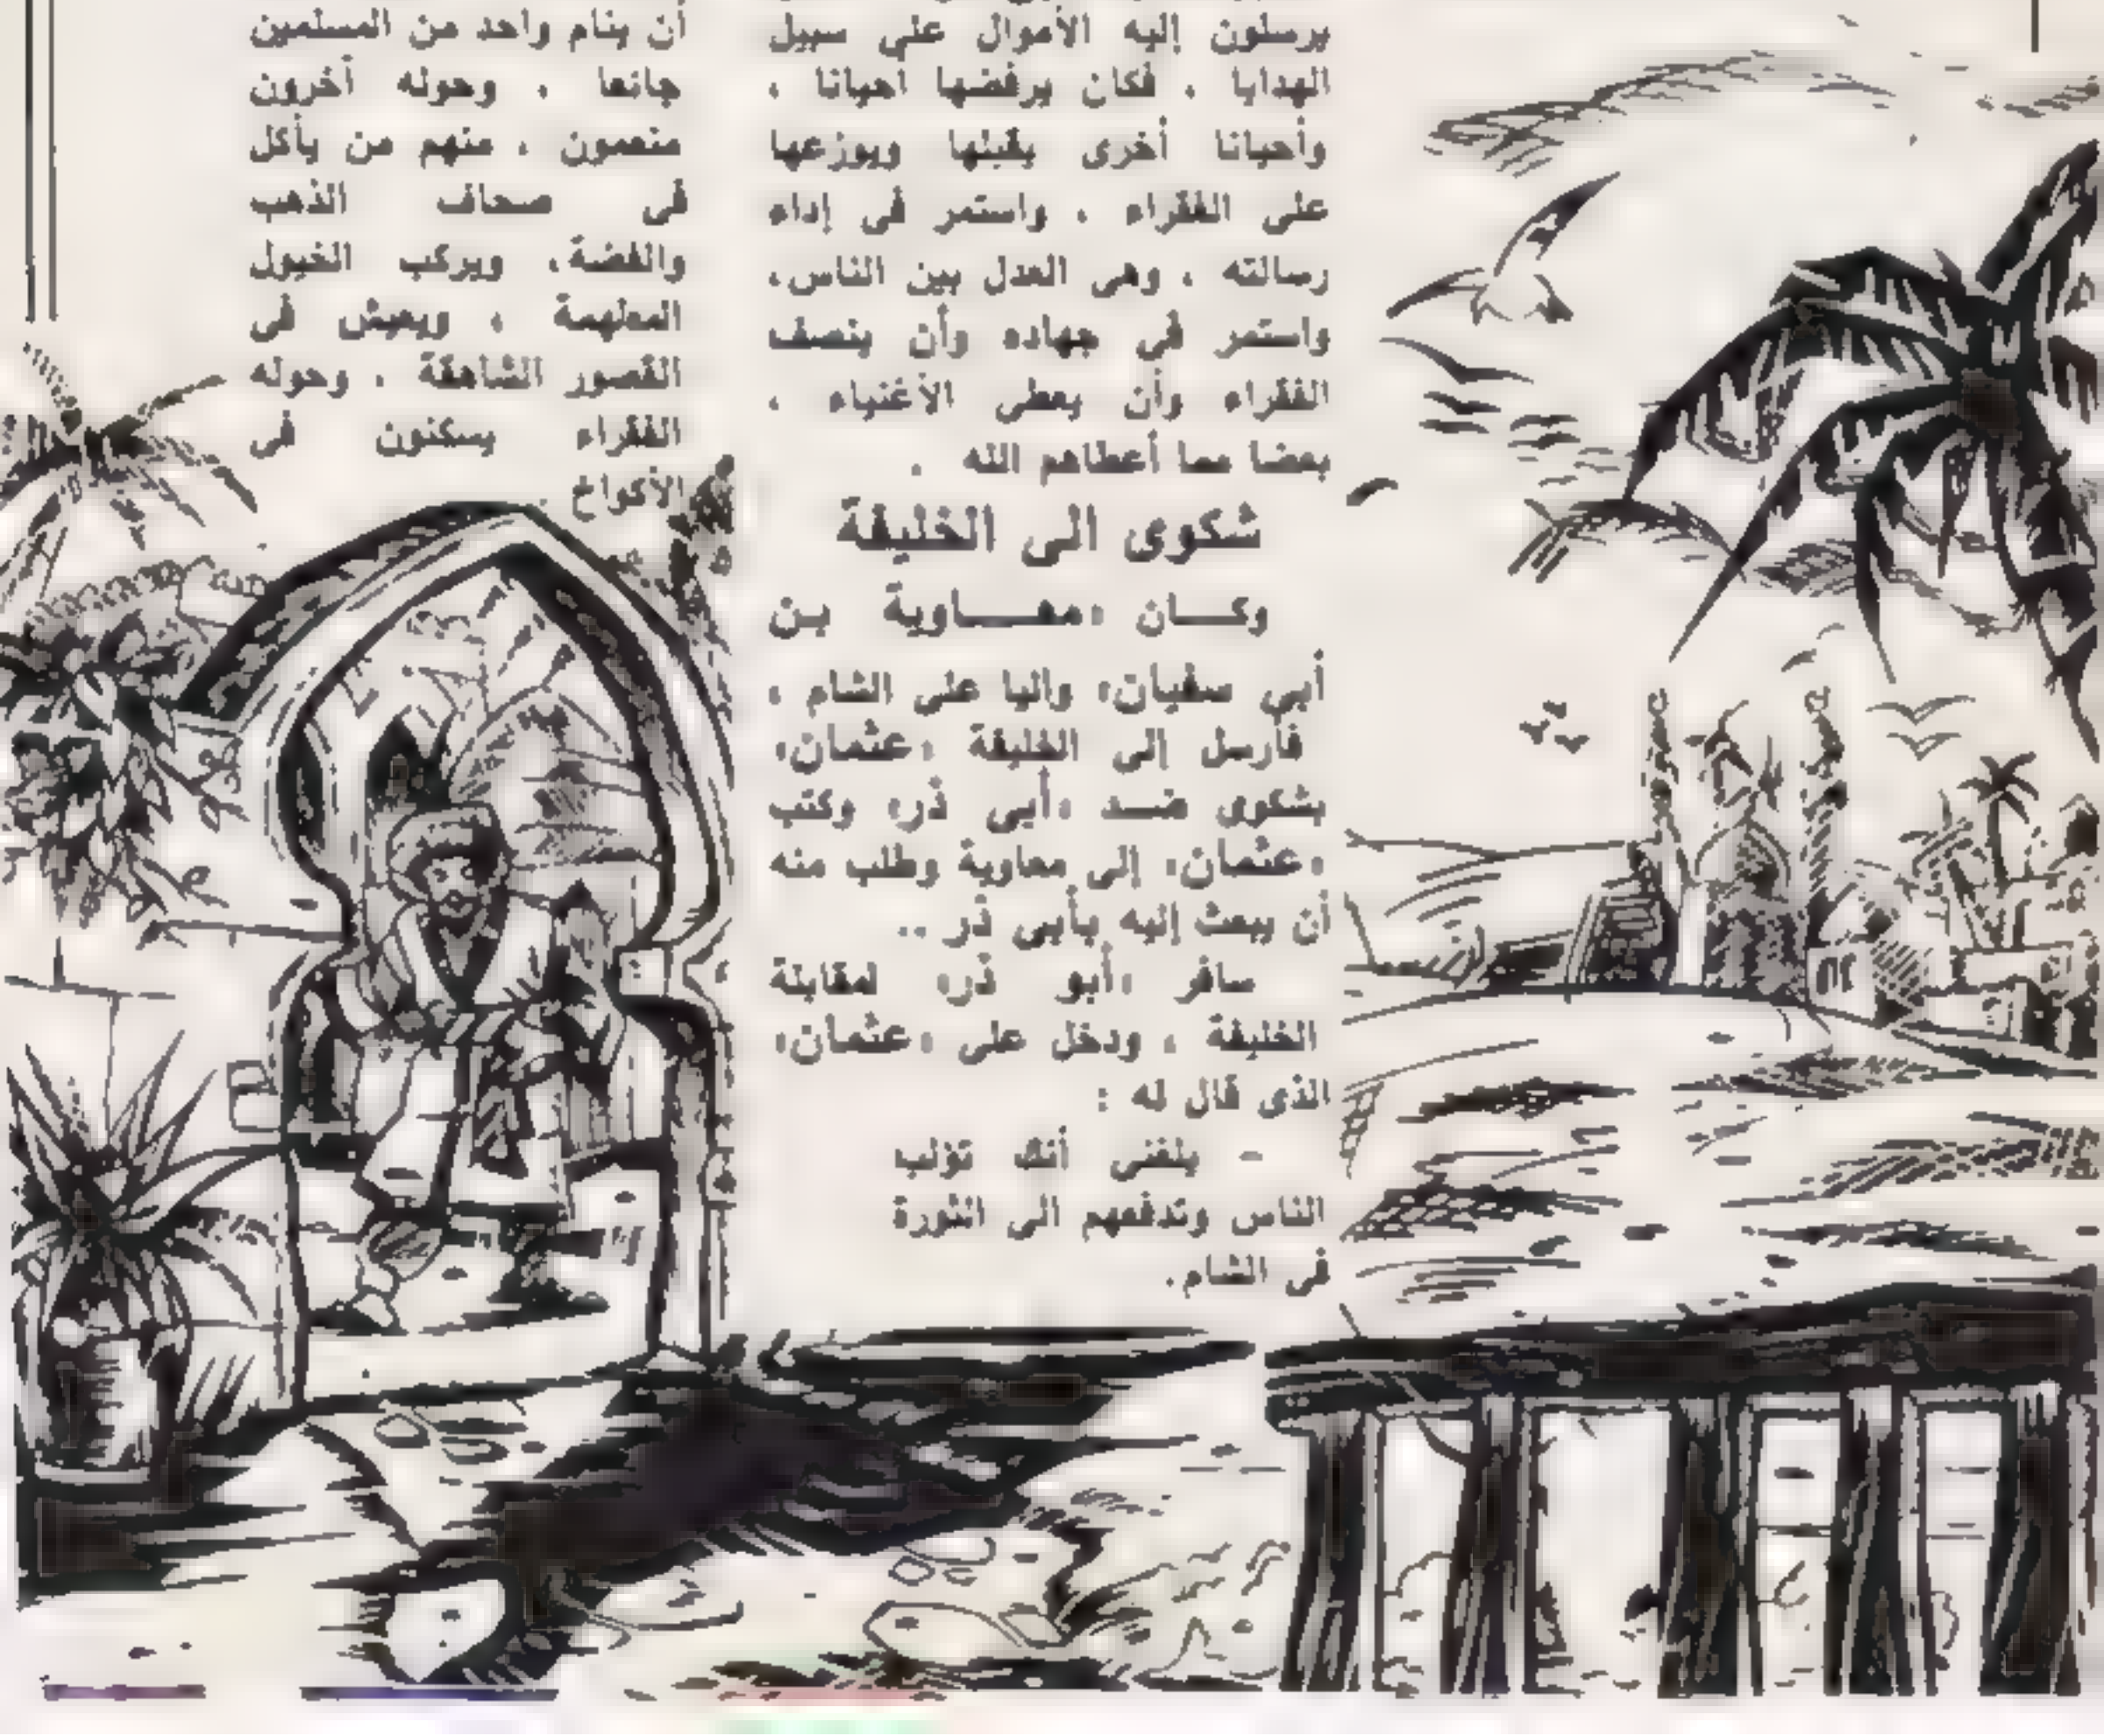 يرسلون إليه الأموال على سبيل
الهدايا ، فكان يرفضها احيانا ،
وأحيانا أخرى يقبلها ويوزعها
على الفقراء ، واستمر في إداء
رسالته ، وهى العدل بين الناس،
واستمر في جهاده وأن ينصف
الفقراء وأن يعطى الأغنياء ،
بعضا مما أعطاهم الله .
شكوى الى الخليفة
وكـــان «معـــاوية بن
أبي سفيان» واليا على الشام ،
فأرسل إلى الخليفة «عثمان»
بشكوى ضــد «أبى ذر» وكتب
«عثمان» إلى معاوية وطلب منه
أن يبعث إليه بأبى ذر ..
سافر «أبو ذر» لمقابلة
الخليفة ، ودخل على «عثمان»
الذى قال له :
- بلغنى أنك تؤلب
الناس وتدفعهم الى الثورة
فى الشام.
أن ينام واحد من المسلمين
جائعا ، وحوله أخرون
منعمون ، منهم من يأكل
فى صحاف الذهب
والفضة، ويركب الخيول
المطهمة ، ويعيش فى
القصور الشاهقة ، وحوله
الفقراء يسكنون فى
الأكواخ .